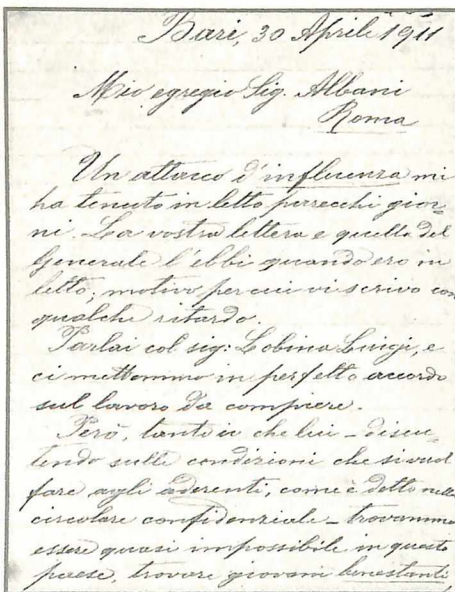 Bari, 30 Aprile 1911
Mio egregio Sig. Albani
Roma
Un attacco d'influenza mi
ha tenuto in letto parecchi gior-
ni. La vostra lettera e quella del
Generale l'ebbi quando ero in
letto; motivo per cui vi scrivo con
qualche ritardo.
Parlai col sig: Lobina Luigi, e
ci mettemmo in perfetto accordo
sul lavoro da compiere.
Però, tanto io che lui – discu-
tendo sulle condizioni che si vuol
fare agli aderenti, come è detto nella
circolare confidenziale – trovammo
essere quasi impossibile in questo
paese, trovare giovani benestanti,